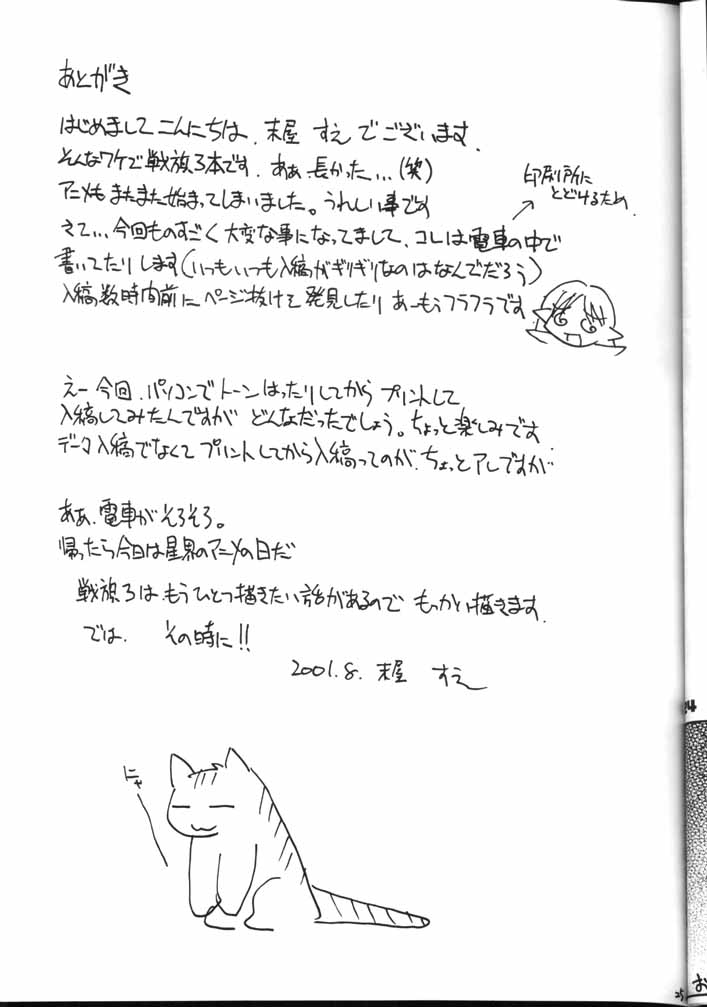 あとがき
はじめましてこんにちは、末屋 すえ でございます.
そんなワケで戦旗3本です. あぁ、長かった...(笑)
アニメもまたまた始まってしまいました。うれしい事です
さて... 今回ものすごく大変な事になってまして、コレは電車の中で
印刷所に
とどけるため.
書いてたりします(いつもいつも入稿がギリギリなのはなんでだろう)
入稿数時間前にページ抜けを発見したり あーもうフラフラです
えー今回、パソコンでトーンはったりしてから プリントして
入稿してみたんですが どんなだったでしょう。ちょっと楽しみです
データ入稿でなくて プリントしてから入稿ってのが、ちょっとアレですが
ああ、電車がそろそろ。
帰ったら今日は星界のアニメの日だ
戦旗3は、もうひとつ描きたい話があるので もっかい描きます.
では、 その時に!!
2001.8. 末屋 すえ
にゃ
25